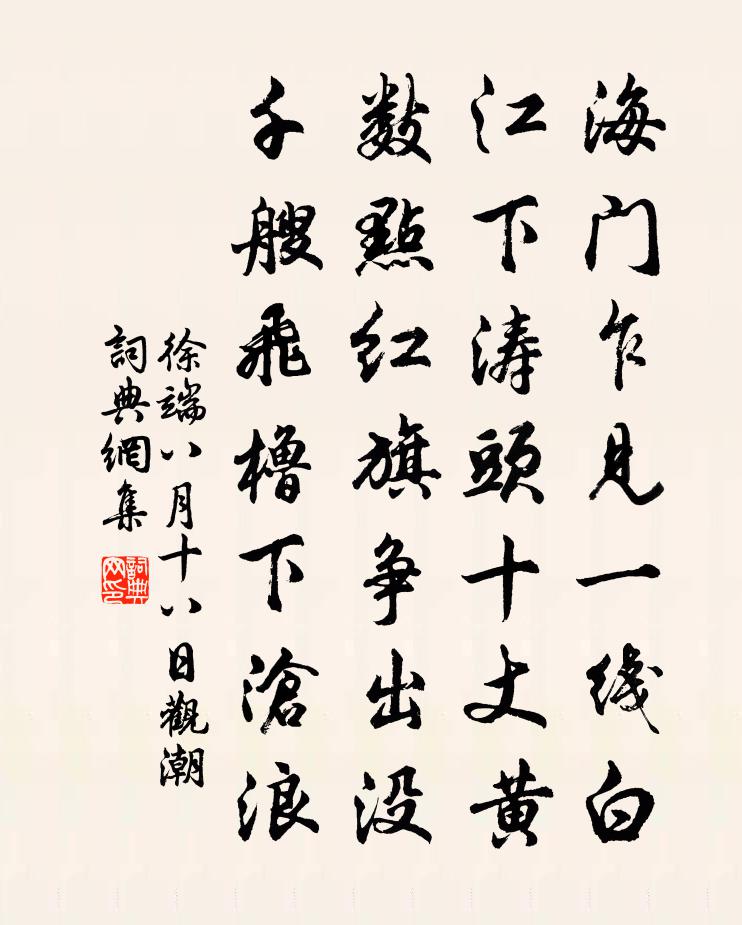 海门乍見一线白
江下涛頭十丈黃
数點红旗争出没
千艘飛櫓下滄浪
徐端八月十八日觀潮
詞典網集
詞典网印